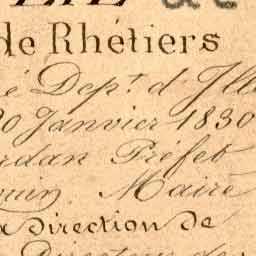 de Rhétiers
é Dep.t d Ille
20 Janvier 1830
rdan Préfet
Maire
a Direction de
Directeur de